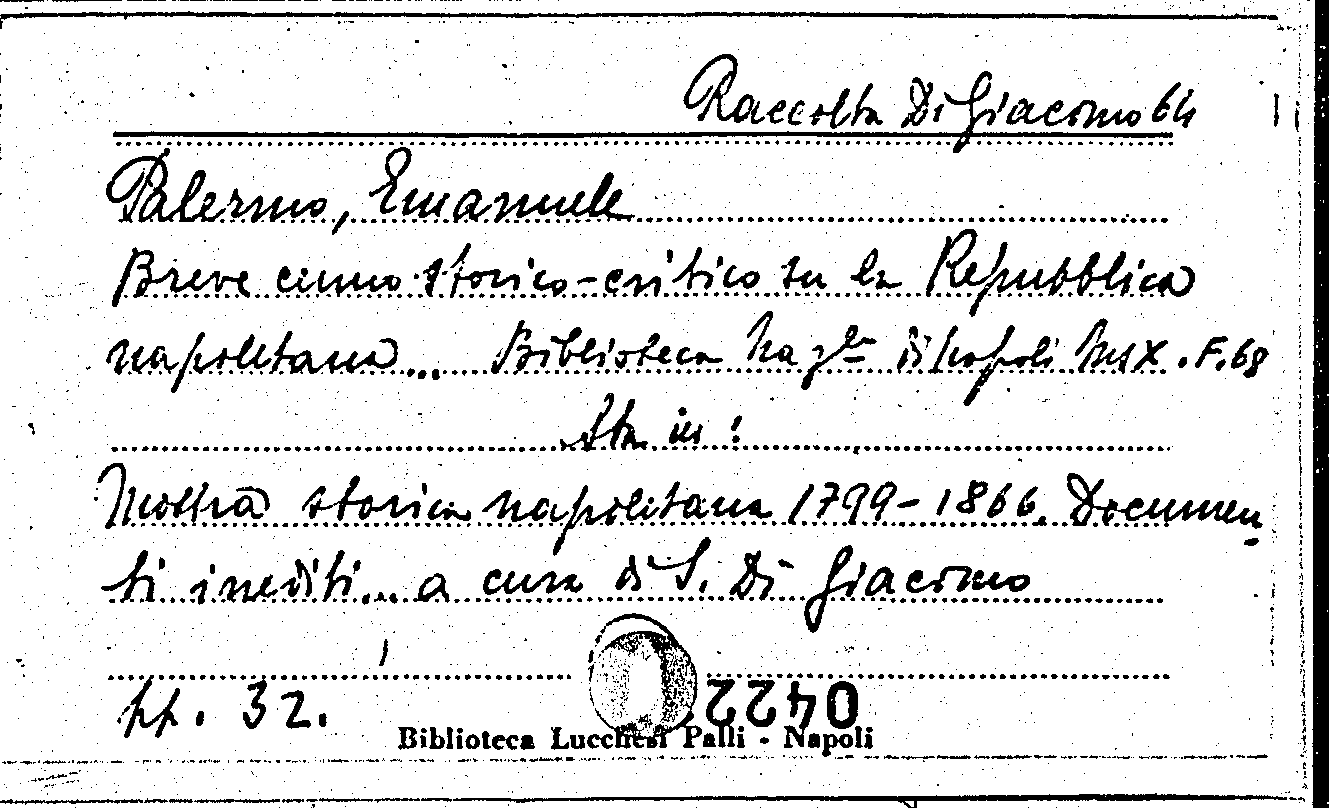 Raccolta Di Giacomo 64
Palermo, Emanuele
Breve cenno storico-critico su la Repubblica
napoletana... Biblioteca Nazle di Napoli Ms X.F.68
Sta in:
Mostra storica napoletana 1799-1866. Documen
ti inediti... a cura di S. Di Giacomo
pp. 32.
0422
Biblioteca Lucchesi Palli - Napoli